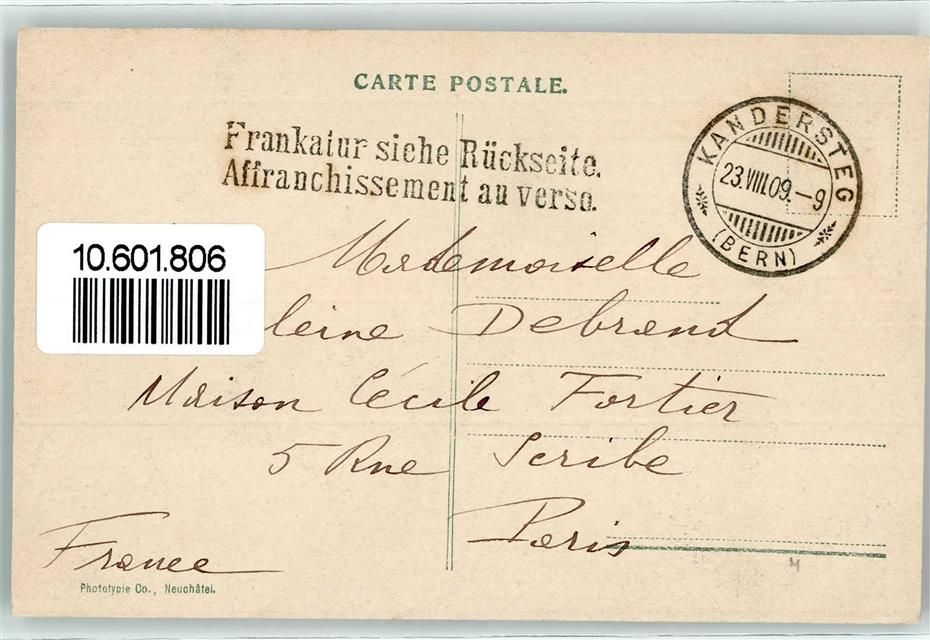 CARTE POSTALE.
Frankatur siehe Rückseite.
Affranchissement au verso.
KANDERSTEG
23.VIII.09.-9
(BERN)
10.601.806
Mademoiselle
leine Debrand
Maison Cécile Fortier
5 Rue Scribe
Paris
France
Phototypie Co., Neuchâtel.
M